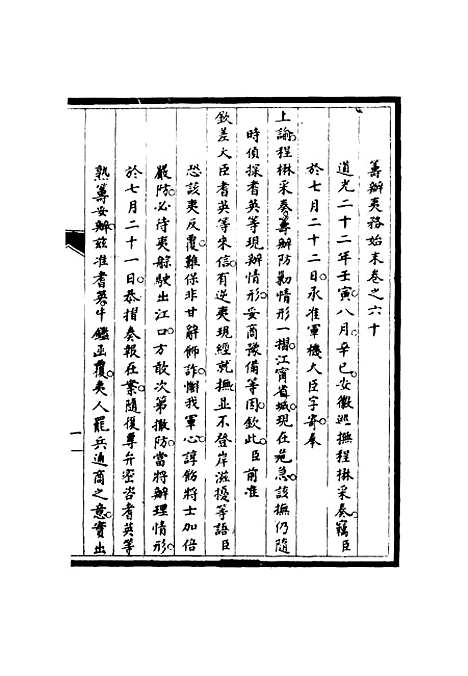 籌辦夷務始末卷之六十
道光二十二年壬寅八月辛巳安徽巡撫程楙采奏竊臣
於七月二十二日承准軍機大臣字寄奉
上諭程楙采奏籌辦防勦情形一摺江甯省城現在危急該撫仍隨
時偵探耆英等現辦情形妥商豫備等因欽此臣前准
欽差大臣耆英等來信有逆夷現經就撫並不登岸滋擾等語臣
恐該夷反覆難保非甘辭飾詐懈我軍心諄飭將士加倍
嚴防必待夷艅駛出江口方敢次第撤防當將辦理情形
於七月二十一日恭摺奏報在案隨復專弁密咨耆英等
熟籌妥辦茲准耆英牛鑑函覆夷人罷兵通商之意實出
一